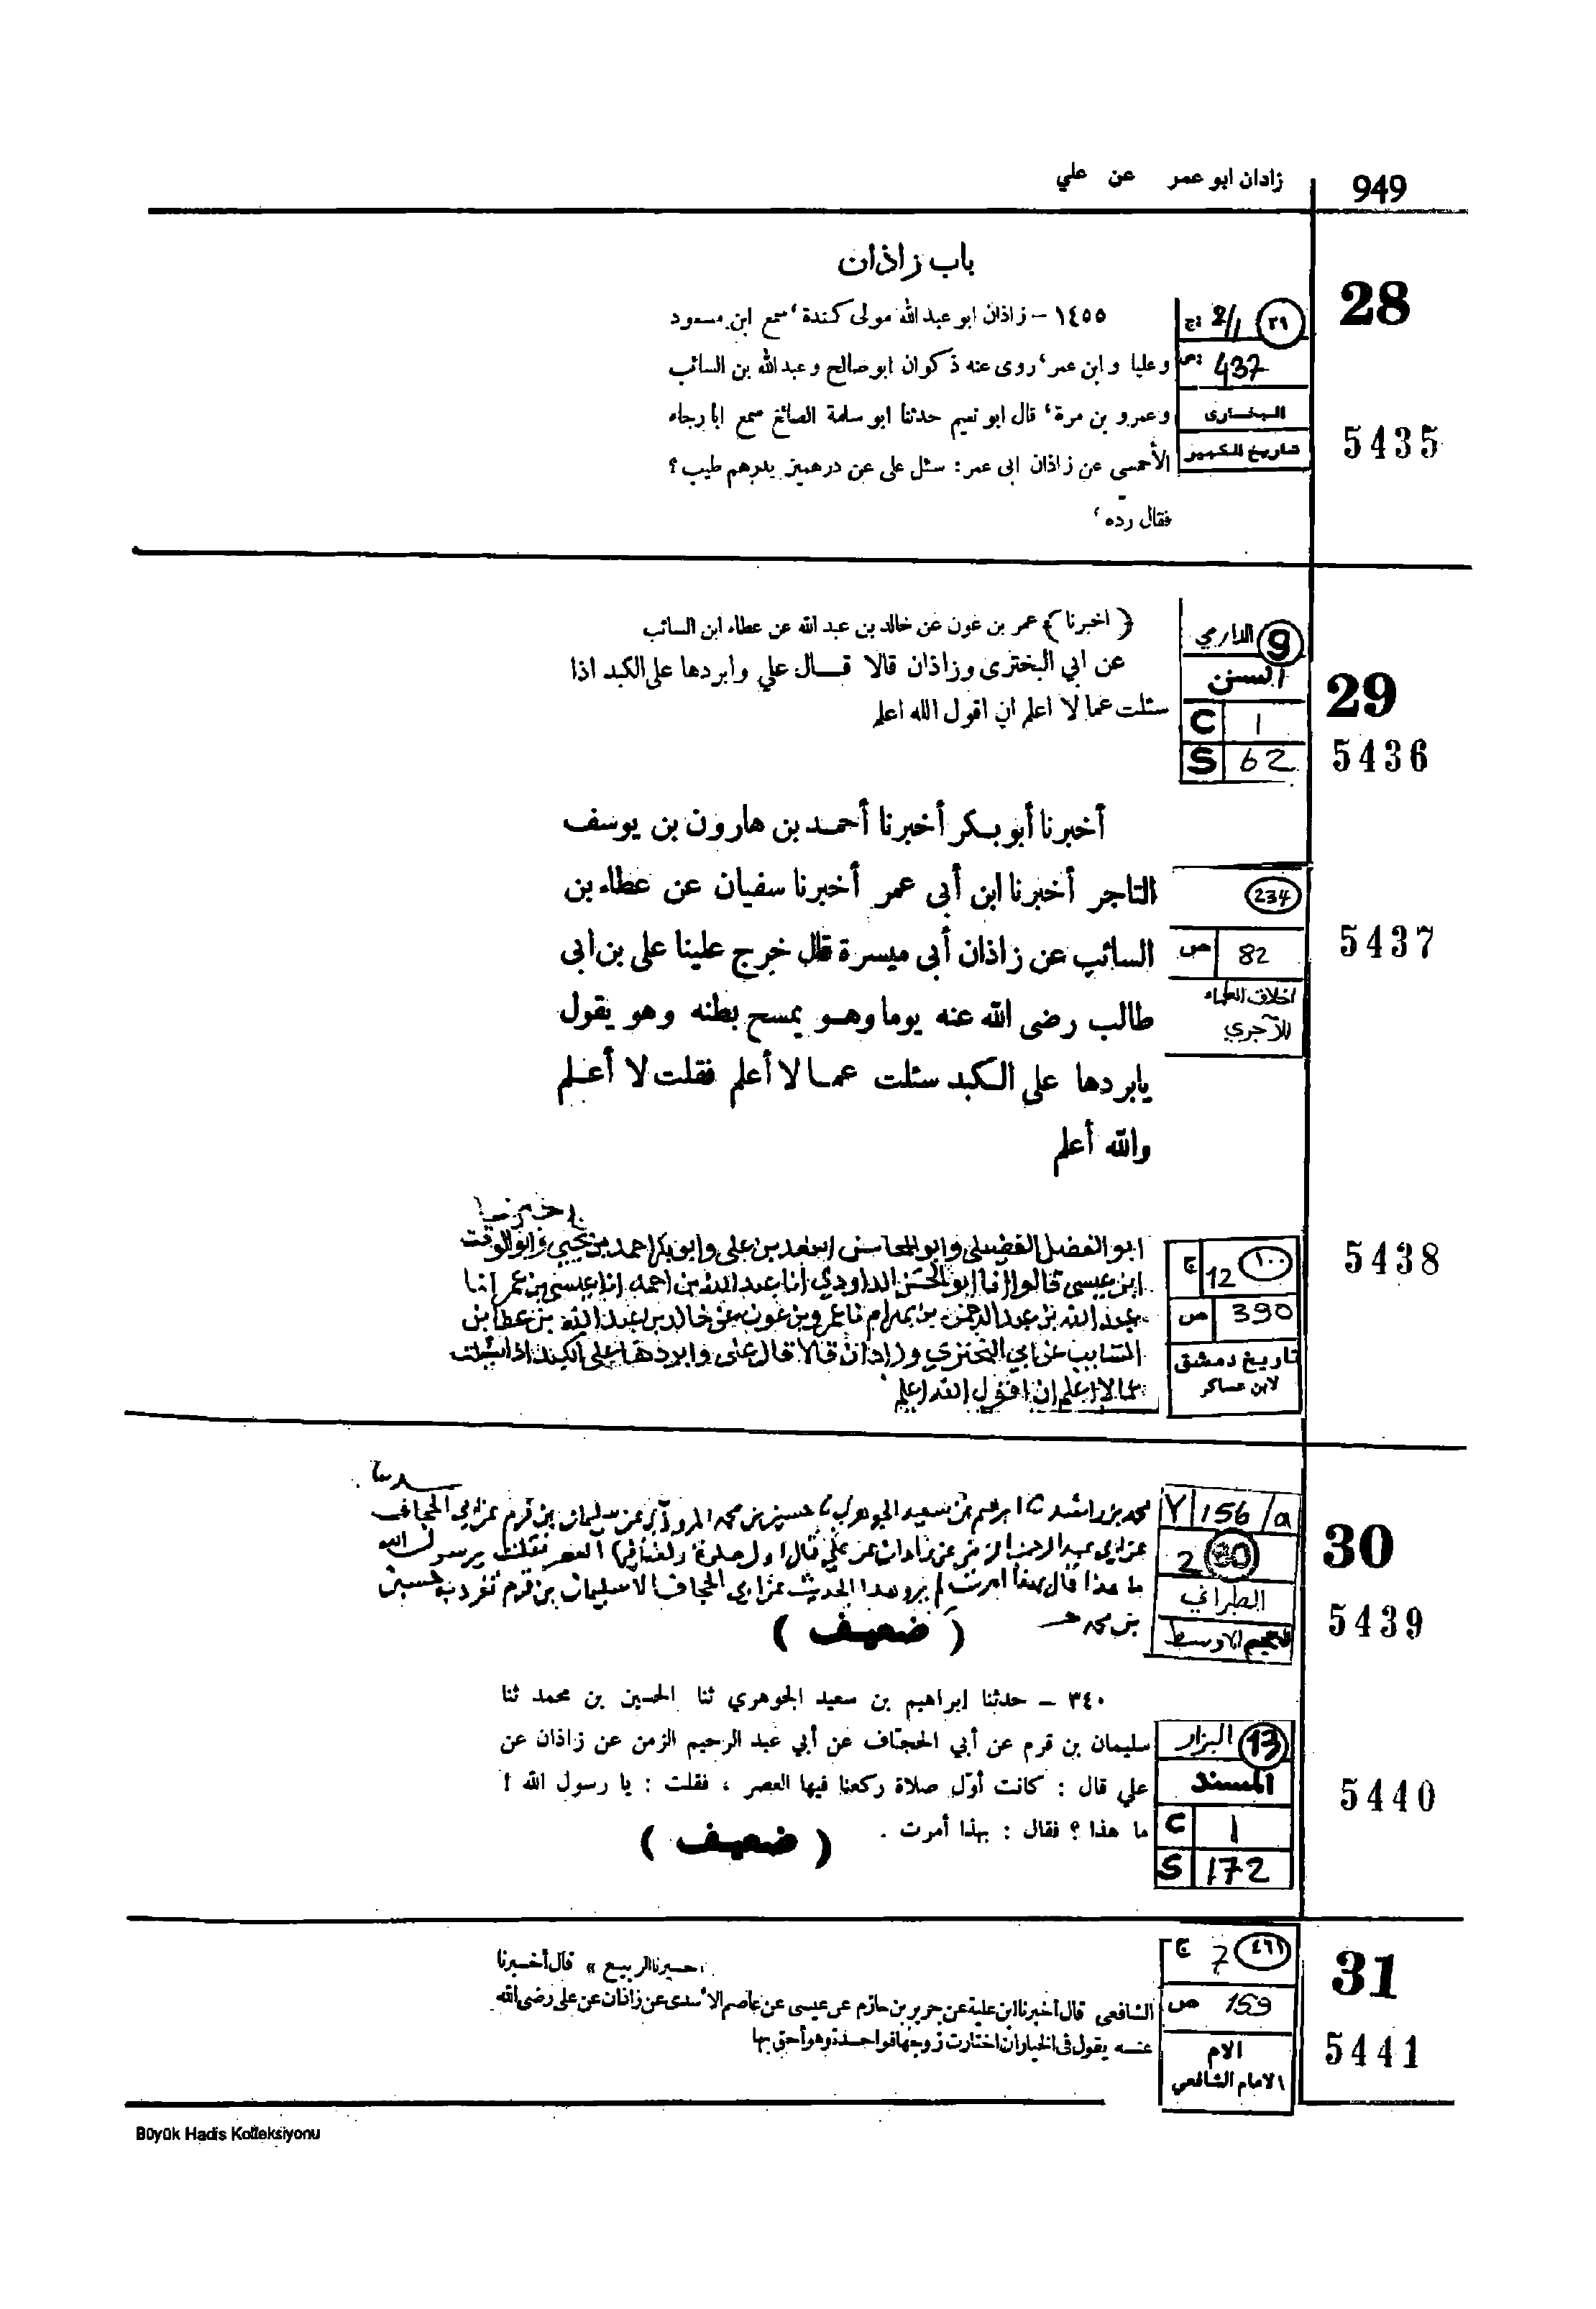 949
زادان ابو عمر عن علي
28
باب زاذان
٢٩ 2/1 ج:
437 ص:
البخارى
تاريخ الكبير
5435
١٤٥٥ – زاذان ابو عبد الله مولى كندة، سمع ابن مسعود
وعليا وابن عمر، روى عنه ذكوان ابو صالح وعبد الله بن السائب
وعمرو بن مرة، قال ابو نعيم حدثنا ابو سلمة الصائغ سمع ابا رجاء
الأحمسى عن زاذان ابى عمر: سئل على عن درهمين بدرهم طيب؟
فقال رده،
29
9 الدارمي
السنن
C 1
S 62
5436
﴿ اخبرنا ﴾ عمر بن عون عن خالد بن عبد الله عن عطاء ابن السائب
عن ابي البخترى وزاذان قالا قال علي وابردها على الكبد اذا
سئلت عما لا اعلم ان اقول الله اعلم
234
82 ص
اخلاق العلماء
للآجري
5437
أخبرنا أبو بكر أخبرنا أحمد بن هارون بن يوسف
التاجر أخبرنا ابن أبى عمر أخبرنا سفيان عن عطاء بن
السائب عن زاذان أبى ميسرة قال خرج علينا على بن ابى
طالب رضى الله عنه يوما وهو يمسح بطنه وهو يقول
يابردها على الكبد سئلت عما لا أعلم فقلت لا أعلم
والله أعلم
١٠٠ 12 ج
390 ص
تاريخ دمشق
لابن عساكر
5438
اخبرنا
ابو الفضل الفضيلى وابو المحاسن اسعد بن على وابو بكر احمد بن يحيى وابو الوقت
ابن عيسى قالوا انا ابو الحسن الداودي انا عبد الله بن احمد انا عيسى بن عمر انا
عبد الله بن عبد الرحمن بن بهرام نا عمرو بن عون عن خالد بن عبد الله عن عطا بن
السايب عن ابي البختري وزادان قالا قال على وابردها على الكبد اذا سئلت
عما لا اعلم ان اقول الله اعلم
30
Y 156/a
2 80
الطبراني
المعجم الاوسط
5439
حدثنا
محمد بن راشد ثنا ابرهيم بن سعيد الجوهري ثنا حسين بن محمد المروذي عن سليمان بن قرم عن ابي الحجاف
عن ابي عبد الرحمن الزمن عن زادان عن علي قال اول صلوة ركعنا فيها العصر فقلت يرسول الله
ما هذا قال بهذا امرت لم يرو هذا الحديث عن ابي الحجاف الا سليمان بن قرم تفرد به حسين
بن محمد
( ضعيف )
13 البزار
المسند
C 1
S 172
5440
٣٤٠ – حدثنا إبراهيم بن سعيد الجوهري ثنا الحسين بن محمد ثنا
سليمان بن قرم عن أبي الحجّاف عن أبي عبد الرحيم الزمن عن زاذان عن
علي قال : كانت أوّل صلاة ركعنا فيها العصر ، فقلت : يا رسول الله !
ما هذا ؟ فقال : بهذا أمرت .
( ضعيف )
31
٤٦١ 7 ج
159 ص
الام
الامام الشافعي
5441
اخبرنا الربيع » قال أخبرنا
الشافعى قال أخبرنا ابن علية عن جرير بن حازم عن عيسى عن عاصم الأسدى عن زاذان عن على رضى الله
عنه يقول فى الخيار ان اختارت زوجها فواحدة وهو أحق بها
Büyük Hadis Kolleksiyonu